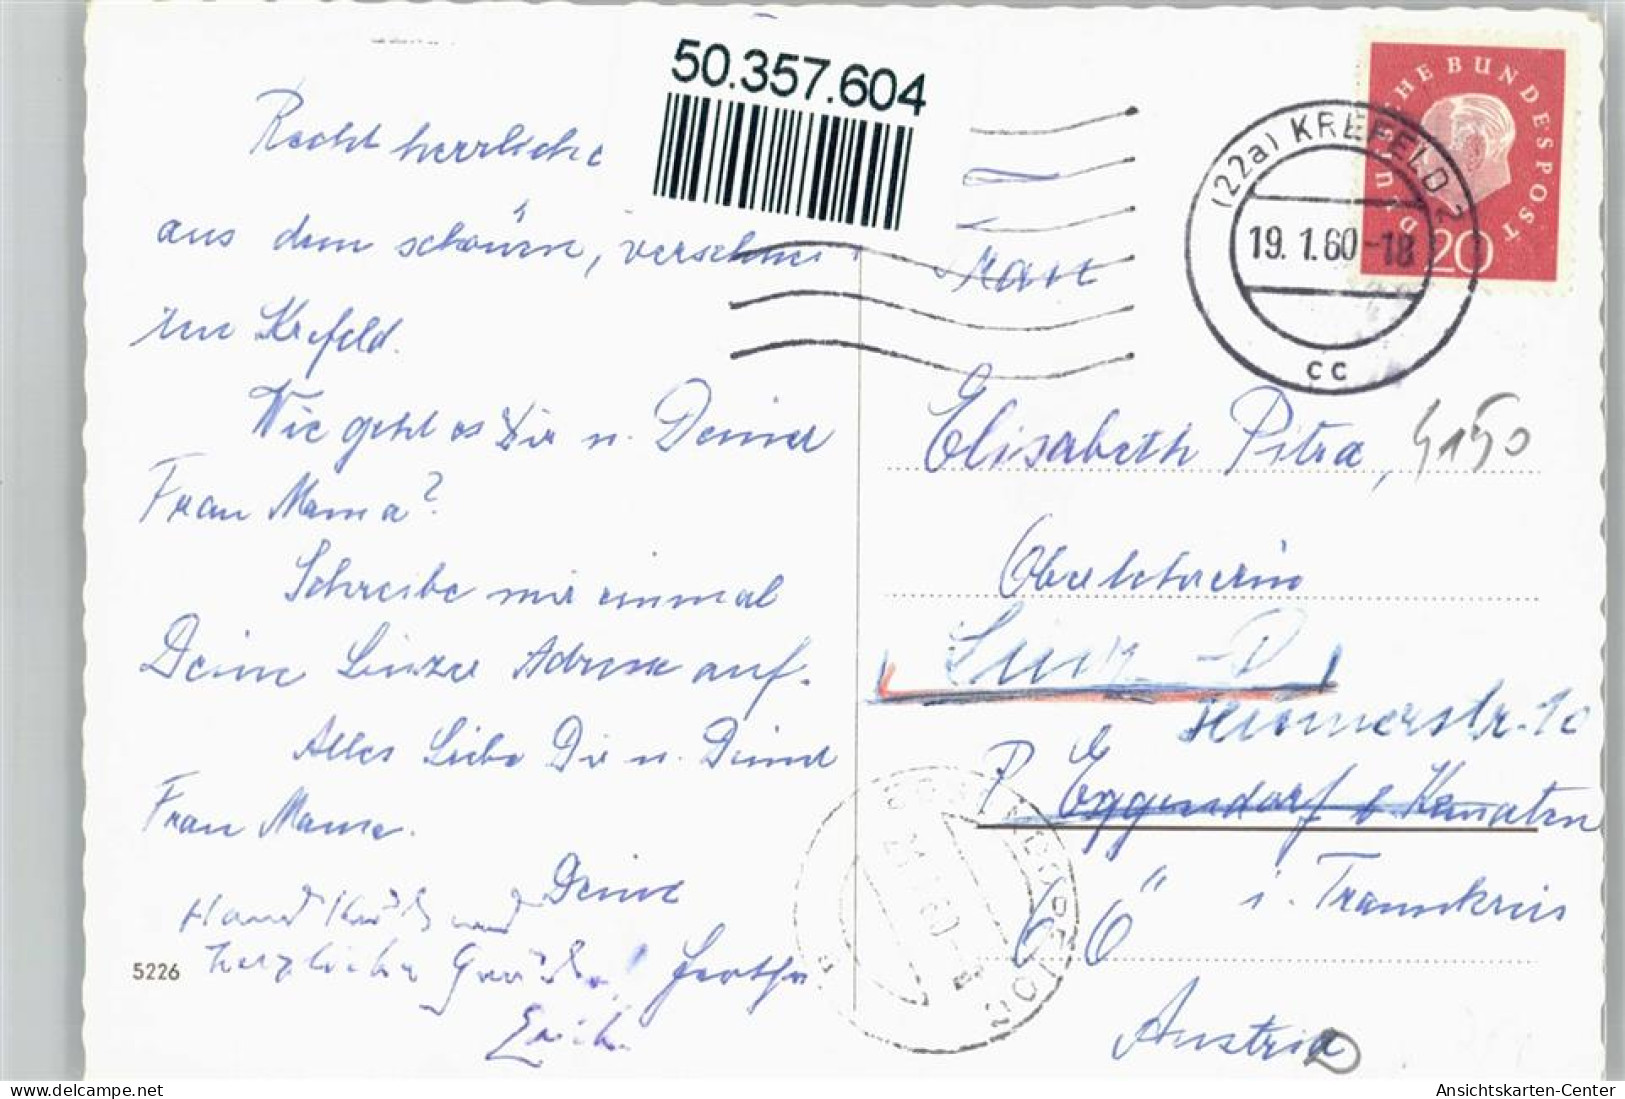 50.357.604
DEUTSCHE BUNDESPOST
20
(22a) KREFELD 2
19. 1. 60-18
cc
Recht herrliche
aus dem schönen, verschnei
ten Krefeld.
Wie geht es Dir u. Deiner
Frau Mama?
Schreibe mir einmal
Deine Linzer Adresse auf.
Alles Liebe Dir u. Deiner
Frau Mama.
Deine
Hand Küsse und
herzliche Grüße
Erich
5226
Elisabeth Pitra,
Oberlehrerin
Linz-D
P. Eggendorf b Kematen
i. Traunkreis
OÖ
Austria
Ansichtskarten-Center
www.delcampe.net